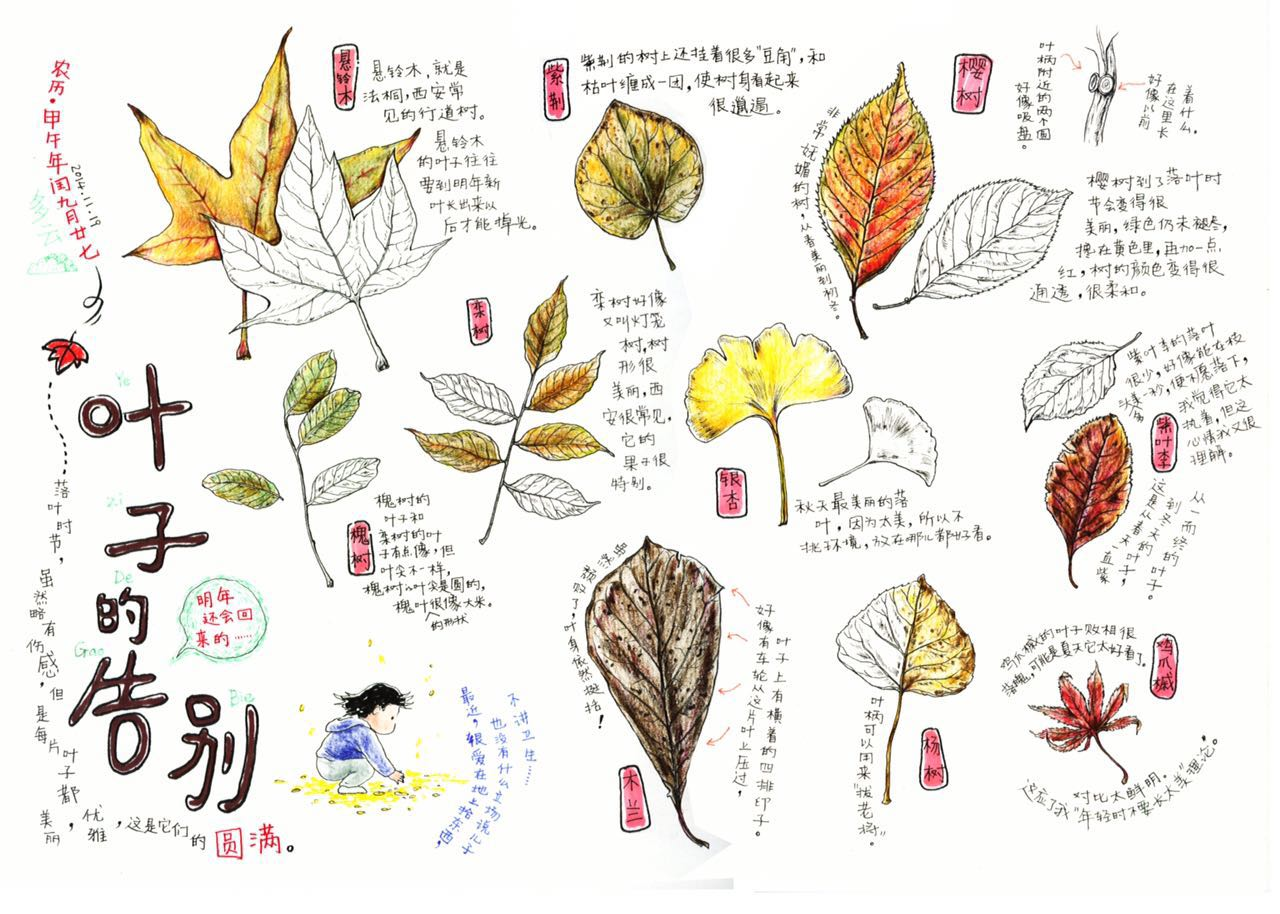 农历·甲午年闰九月廿七
2014.11.19
多云
Ye
叶
zi
子
De
的
Gao
告
Bie
别
落叶时节,虽然略有伤感,但是每片叶子都美丽,优雅,这是它们的圆满。
明年
还会回
来的……
悬铃木
悬铃木,就是
法桐,西安常
见的行道树。
悬铃木
的叶子往往
要到明年新
叶长出来以
后才能掉光。
紫荆
紫荆的树上还挂着很多“豆角”,和
枯叶缠成一团,使树身看起来
很邋遢。
樱树
非常妩媚的树,从春美丽到初冬。
叶柄附近的两个圆
好像吸盘。
好像以前
在这里长
着什么。
樱树到了落叶时
节会变得很
美丽,绿色仍未褪尽,
揉在黄色里,再加一点
红,树的颜色变得很
通透,很柔和。
栾树
栾树好像
又叫灯笼
树,树
形很
美丽,西
安很常见,
它的
果子很
特别。
槐树
槐树的
叶子和
栾树的叶
子有点像,但
叶尖不一样,
槐树的叶尖是圆的,
槐叶的形状很像大米。
银杏
秋天最美丽的落
叶,因为太美,所以不
挑环境,放在哪儿都好看。
紫叶李
紫叶李的落叶
很少,好像能在枝
头美一秒,便不愿落下,
我觉得它太
执着,但这
心情我又很
理解。
从一而终的
到冬天的叶子。
这是从春天的叶子,
一直紫
木兰
了,叶身依然挺括!
叶子上有横着的四排印子。
好像有车轮从这片叶上压过,
杨树
叶柄可以用来“拔老将”。
鸡爪槭
鸡爪槭的叶子败相很
落魄,可能是夏天它太好看了。
对比太鲜明。
这应了我“年轻时不要长太美”理论。
不讲卫生……
也没有什么立场说儿子
最近,很爱在地上拾东西,